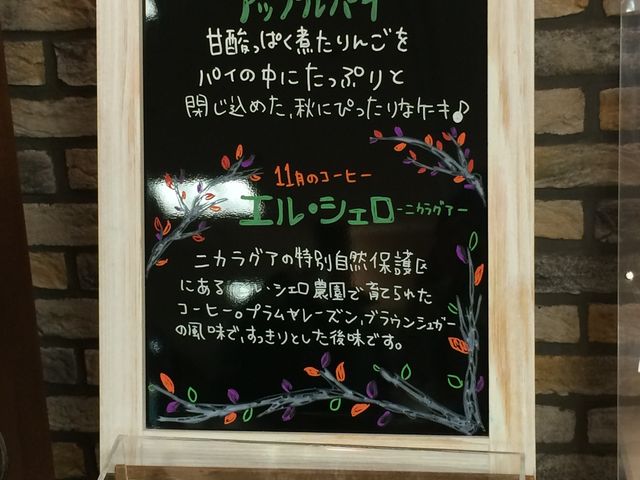 アップルパイ
甘酸っぱく煮たりんごを
パイの中にたっぷりと
閉じ込めた、秋にぴったりなケーキ♪
11月のコーヒー
エル・シェロ -ニカラグアー
ニカラグアの特別自然保護区
にあるエル・シェロ農園で育てられた
コーヒー。プラムやレーズン、ブラウンシュガー
の風味で、すっきりとした後味です。